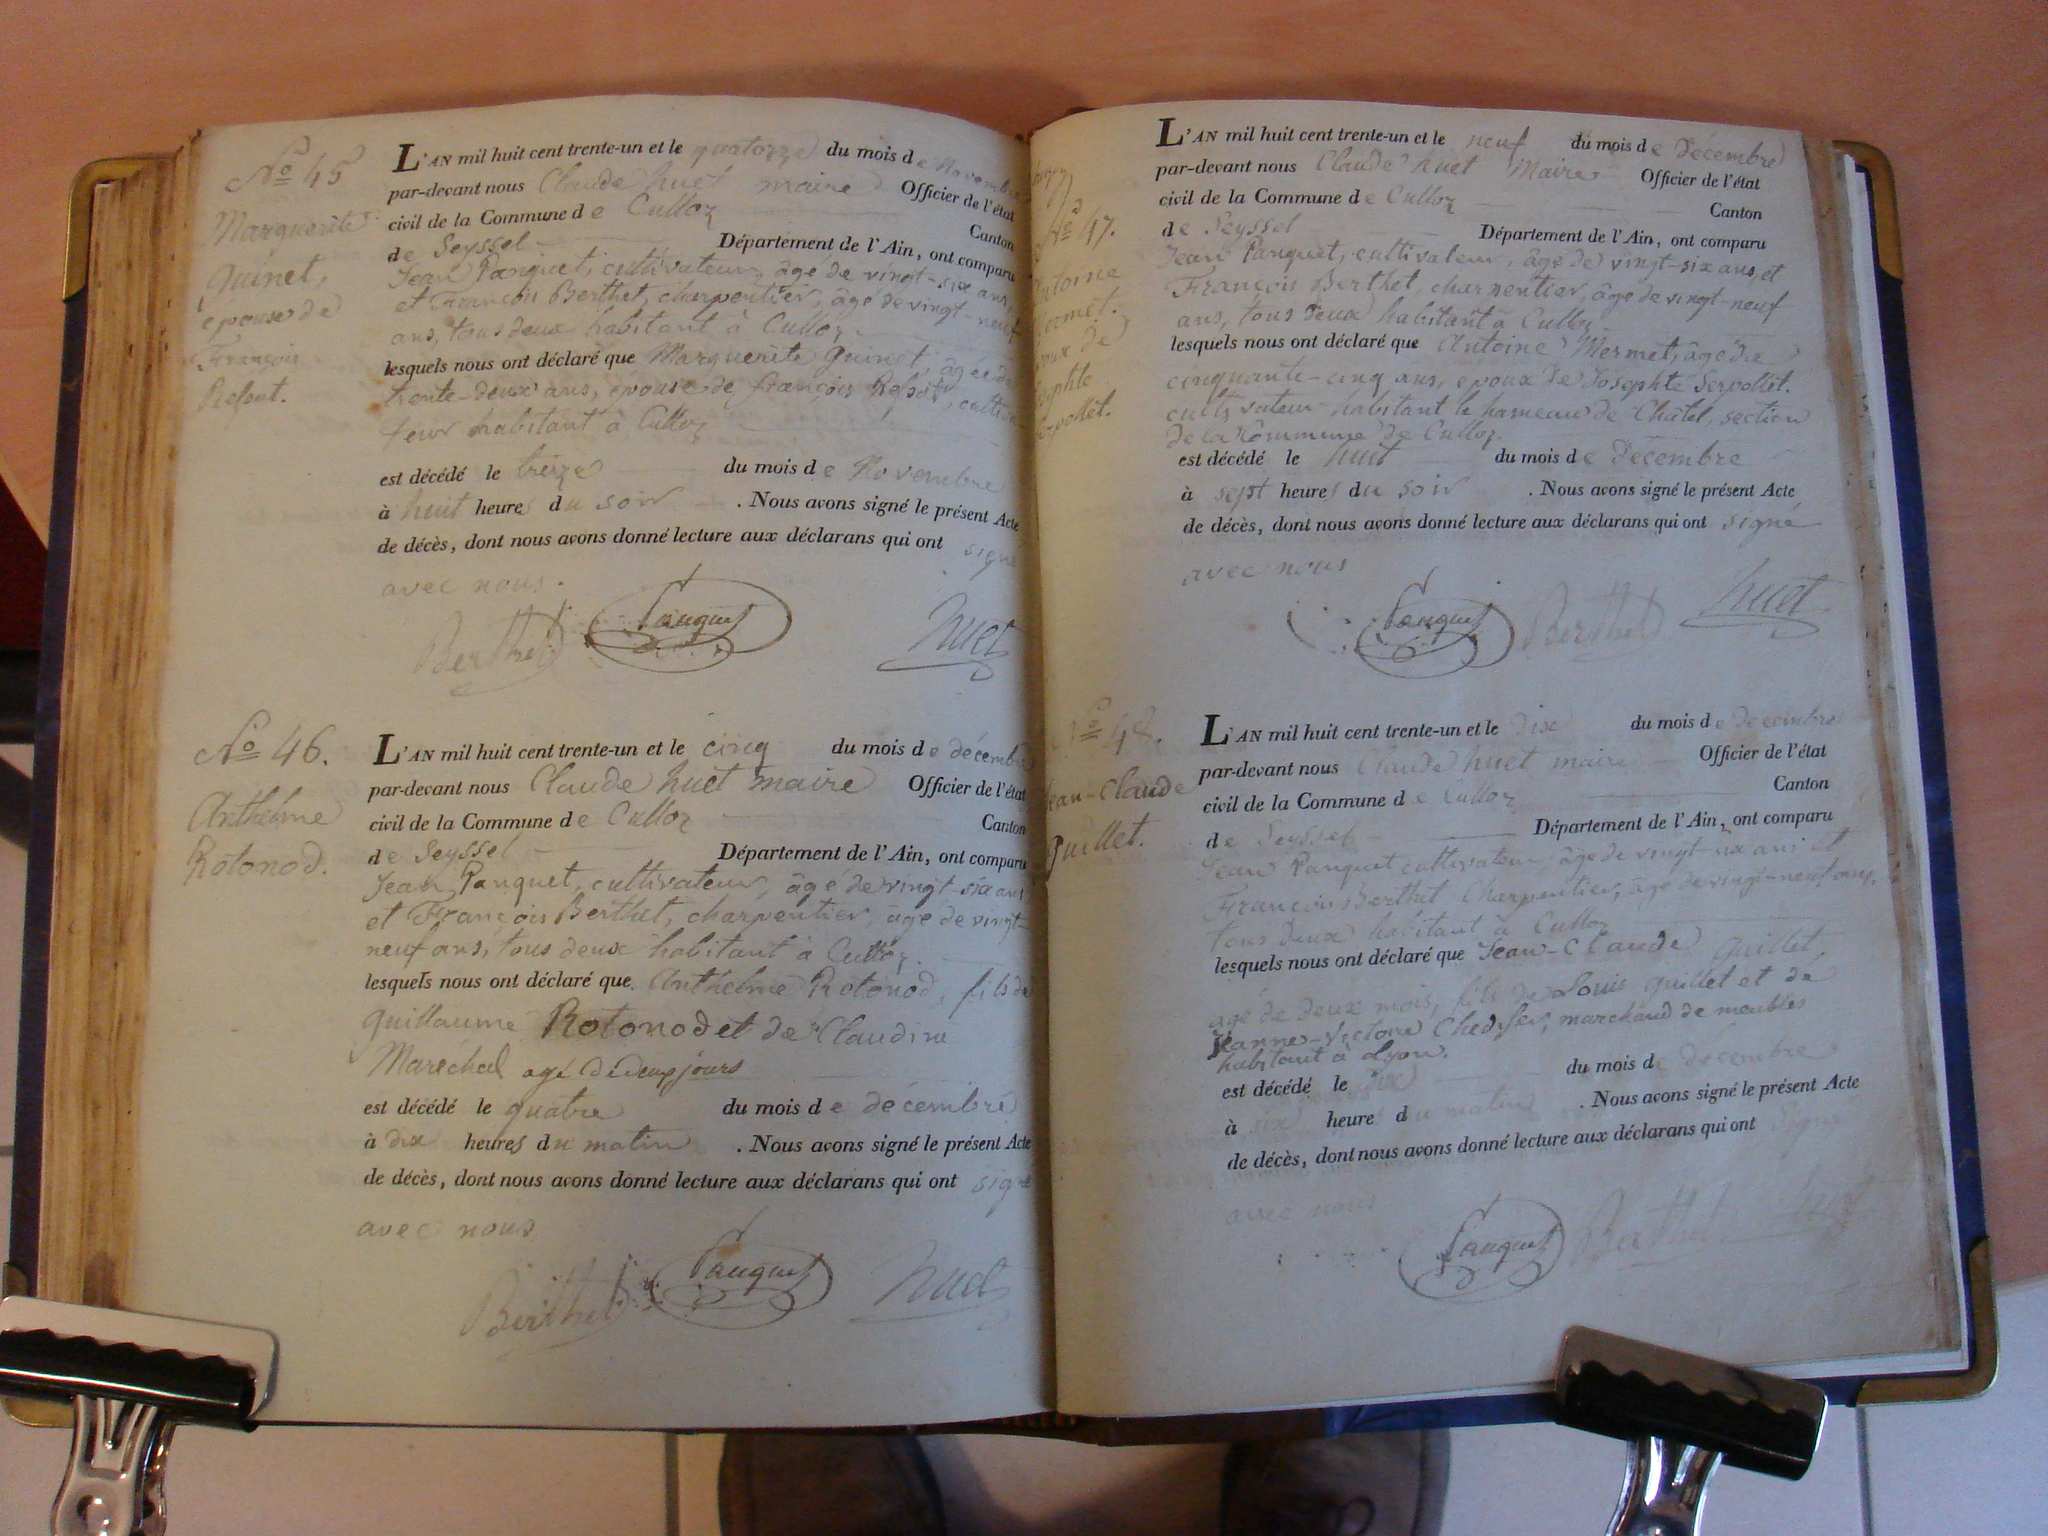 No 45
Marguerite
Guinet,
épouse de
François
Refout.
L'AN mil huit cent trente-un et le quatorze du mois de Novembre
par-devant nous Claude huet maire Officier de l'état
civil de la Commune de Culloz Canton
de Seyssel Département de l'Ain, ont comparu
Jean Panquet, cultivateur, âgé de vingt-six ans,
et François Berthet, charpentier, âgé de vingt-neuf
ans, tous deux habitant à Culloz
lesquels nous ont déclaré que Marguerite Guinet, âgée de
trente-deux ans, épouse de françois cultiva-
teur habitant à Culloz
est décédé le treize du mois de Novembre
à huit heures du soir . Nous avons signé le présent Acte
de décès, dont nous avons donné lecture aux déclarans qui ont signé
avec nous.
Berthet Panquet huet
No 46.
Anthelme
Rotonod.
L'AN mil huit cent trente-un et le cinq du mois de décembre
par-devant nous Claude huet maire Officier de l'état
civil de la Commune de Culloz Canton
de Seyssel Département de l'Ain, ont comparu
Jean Panquet, cultivateur, âgé de vingt-six ans
et François Berthet, charpentier, âgé de vingt-
neuf ans, tous deux habitant à Culloz.
lesquels nous ont déclaré que Anthelme Rotonod, fils de
Guillaume Rotonod et de Claudine
Maréchal agé de deux jours
est décédé le quatre du mois de décembre
à dix heures du matin . Nous avons signé le présent Acte
de décès, dont nous avons donné lecture aux déclarans qui ont signé
avec nous
Berthet Panquet huet
No 47.
Antoine
Mermet.
époux de
Josephte
Servollet.
L'AN mil huit cent trente-un et le neuf du mois de Decembre
par-devant nous Claude huet Maire Officier de l'état
civil de la Commune de Culloz Canton
de Seyssel Département de l'Ain, ont comparu
Jean Panquet, cultivateur, âgé de vingt-six ans, et
François Berthet, charpentier, âgé de vingt-neuf
ans, tous deux habitant à Culloz
lesquels nous ont déclaré que Antoine Mermet, âgé de
cinquante-cinq ans, epoux de Josephte Servollet.
cultivateur habitant le hameau de Châtel, section
de la Commune de Culloz.
est décédé le huit du mois de Decembre
à sept heures du soir . Nous avons signé le présent Acte
de décès, dont nous avons donné lecture aux déclarans qui ont signé
avec nous
Panquet Berthet huet
No 48.
Jean-Claude
Guillet.
L'AN mil huit cent trente-un et le dix du mois de decembre
par-devant nous Claude huet maire Officier de l'état
civil de la Commune de Culloz Canton
de Seyssel Département de l'Ain, ont comparu
Jean Panquet cultivateur, âgé de vingt-six ans et
François Berthet Charpentier, âgé de vingt-neuf ans,
tous deux habitant à Culloz
lesquels nous ont déclaré que Jean-Claude Guillet,
agé de deux mois, fils de Louis Guillet et de
Jeanne-Victoire marchand de meubles
habitant à Lyon.
est décédé le dix du mois de décembre
à six heure du matin . Nous avons signé le présent Acte
de décès, dont nous avons donné lecture aux déclarans qui ont signé
avec nous
Panquet Berthet huet